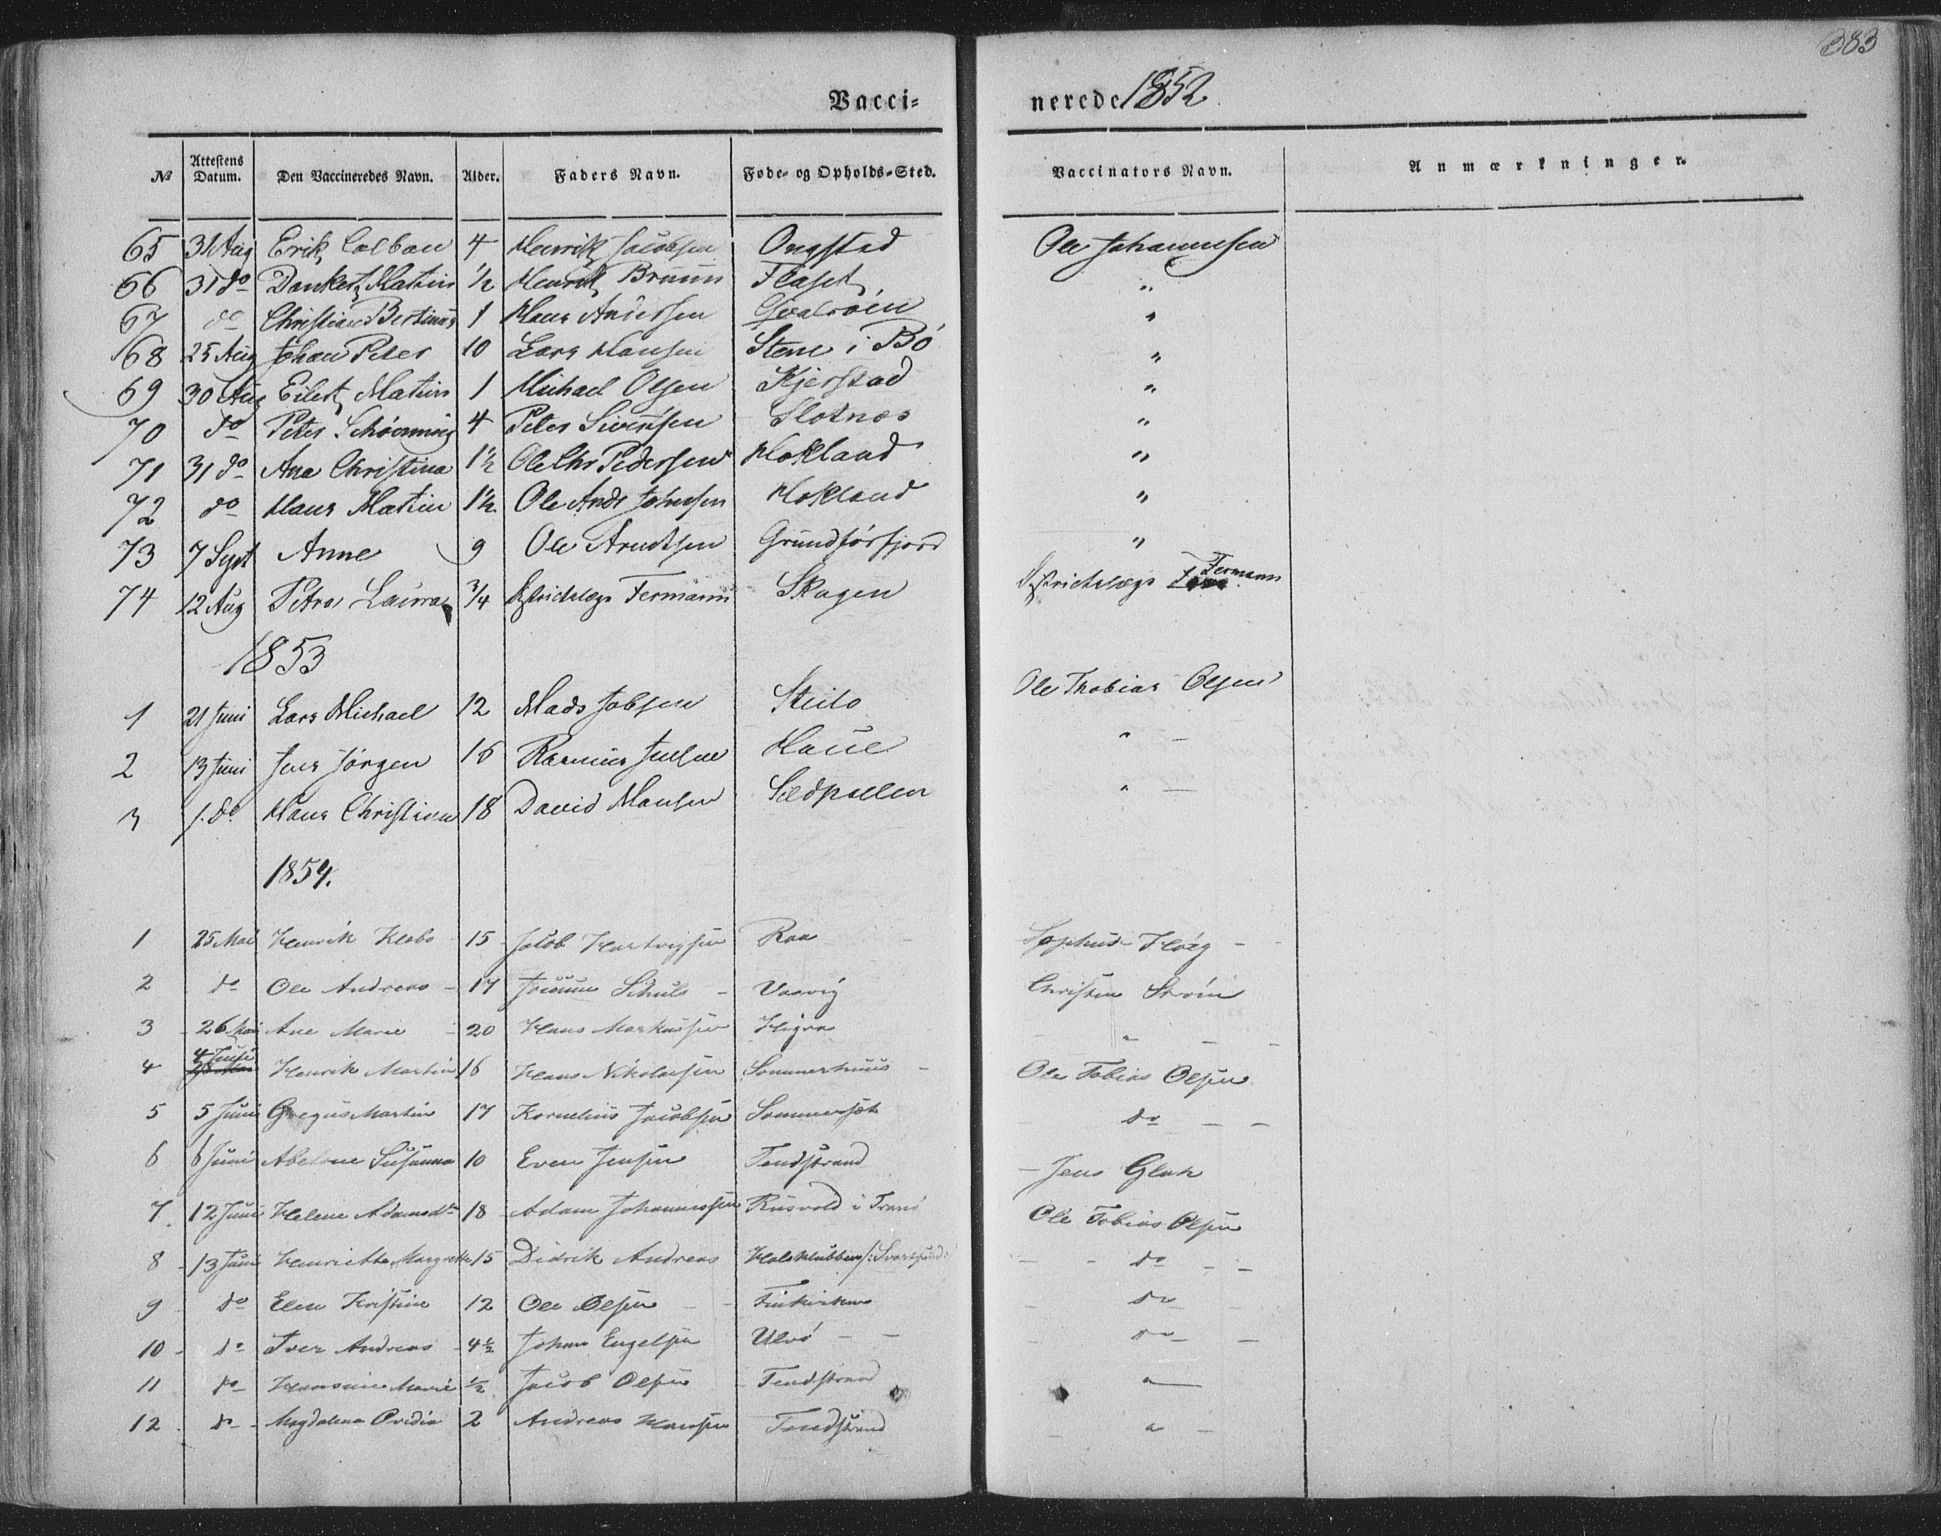 383
Vacci- nerede 1852.
№ Attestens Datum. Den Vaccineredes Navn. Alder. Faders Navn. Føde- og Opholds-Sted. Vaccinators Navn. Anmærkninger.
65 31 Aug Erik Colban 4 Henrik Jacobsen Ongstad Ole Johannesen
66 31 do Dankert Matin 1/2 Henrik Bruun Flaset "
67 do Christian Bertinus 1 Hans Andersen "
68 25 Aug Johan Peter 10 Lars Hansen Stene i Bö "
69 30 Aug Eilert Matin 1 Michael Olsen Kjerstad "
70 do Peter Schönning 4 Peter Sivertsen Slotnæs "
71 31 do Ana Christina 1 1/2 Ole Chr Pedersen Hokland "
72 do Hans Matin 1 1/2 Ole Andr Johnsen Hokland "
73 7 Sept Anne 9 Ole Arntsen Grundförfjord "
74 12 Aug Petra Laura 3/4 Districhslæge Fermann Skagen Districhslæge Fermann
1853
1 21 Juni Lars Michael 12 Mads Jobsen Steilo Ole Thobias Olsen
2 13 Juni Jens Jörgen 16 Rasmus Jensen Haue " —
3 1. do Hans Christian 18 David Hansen Sildpollen " —
1854.
1 25 Mai Henrik Klæbo 15 Jacob Hartvigsen Raa Sophus Høeg
2 do Ole Andreas 17 Schults Vaavig Christen Ström
3 26 Mai Ane Marie 20 Hans Markussen Higra "
4 4 Juni Henrik Martin 16 Hans Nikolaisen Sommerhuus Ole Tobias Olsen
5 5 Juni Gregus Martin 17 Kornelius Jacobsen Sommerset do
6 6 Juni Abelone Susanna 10 Even Jensen Tendstrand Jens Gluk
7. 12 Juni Helene Adamsdtr 18 Adam Johannessen Rusvold i Tranö Ole Tobias Olsen
8 13 Juni Henriette Margrethe 15 Didrik Andreas Holeklubben /: Svartsund: do
9 do Elen Kristine 12 Ole Olsen Finkirken do
10 do Iver Andreas 4 1/2 Johan Engelsen Ulvö do
11 do Hansine Marie 1/2 Jacob Olsen Tendstrand "
12 do Magdalena Ovedia 2 Andreas Hansen Tendstrand "